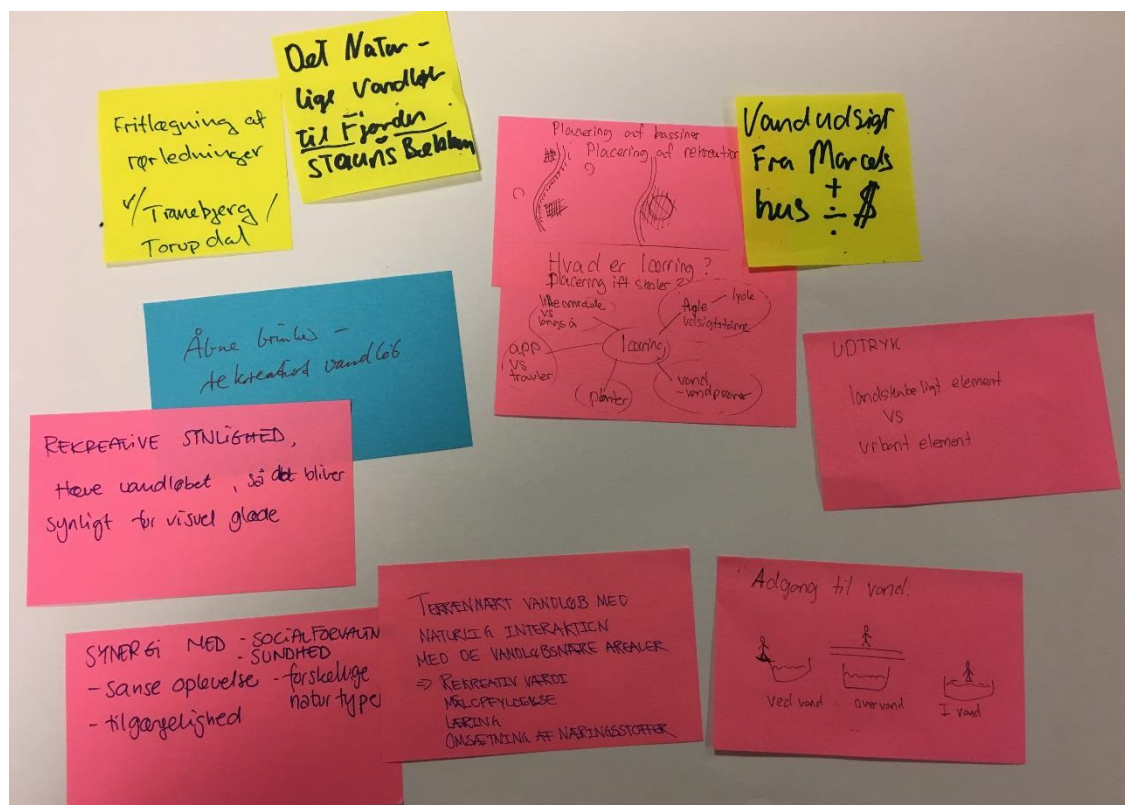 Det Natur-
lige Vandløb
til Fjorden
Stauns Bækken
Fritlægning af
rørledninger
v/Tranebjerg/
Torupdal
Placering af bassiner
Placering af rekreation
Vandudsigt
Fra Marcels
hus + ÷ $
Hvad er læring?
Placering ift skoler?
lille område
vs
langs å
fugle
lyde
udsigtstårne
læring
app
vs
tavler
planter
vand
-vandprøver
Åbne brinker -
rekreativt vandløb
UDTRYK
landskabeligt element
VS
urbant element
REKREATIVE SYNLIGHED,
Hæve vandløbet, så det bliver
synligt for visuel glæde
SYNERGI MED - SOCIALFORVALTN
- SUNDHED
- sanse oplevelse - forskellige
naturtype
- tilgængelighed
TERRÆNNÆRT VANDLØB MED
NATURLIG INTERAKTION
MED DE VANDLØBSNÆRE AREALER
⇒ REKREATIV VÆRDI
MÅLOPFYLDELSE
LÆRING
OMSÆTNING AF NÆRINGSSTOFFER
Adgang til vand.
Ved vand
over vand
I vand